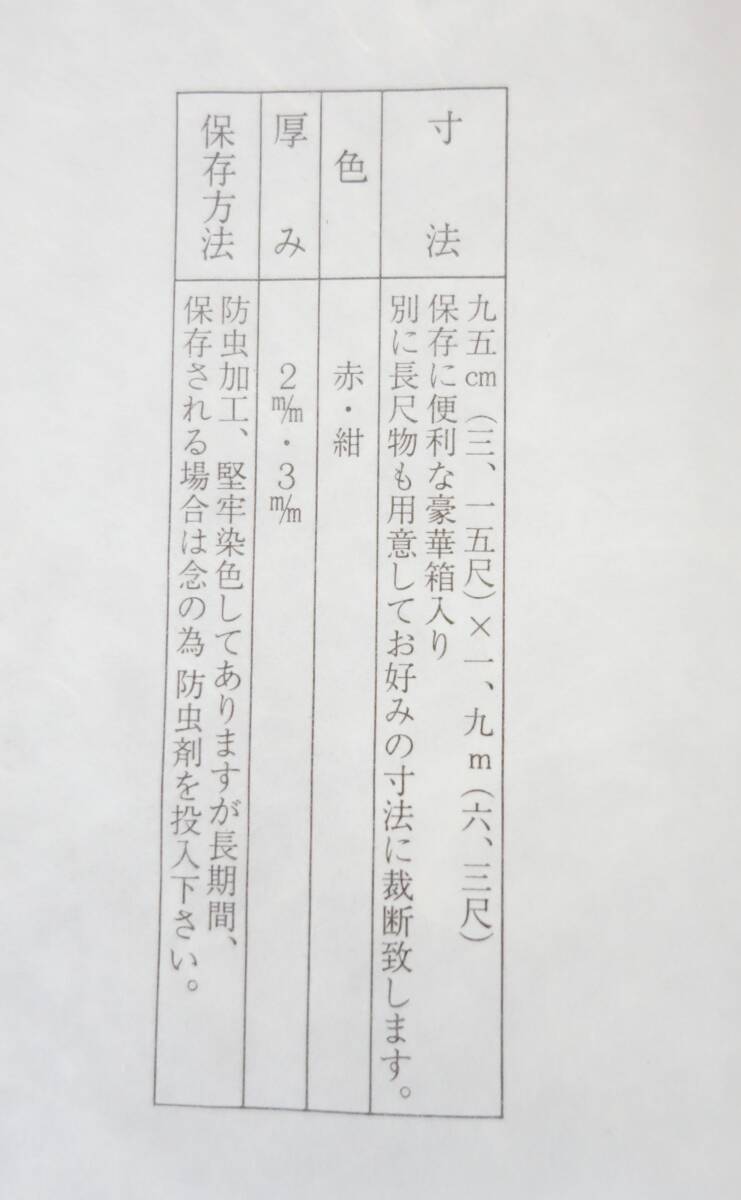 寸法
九五cm(三、一五尺)×一、九m(六、三尺)
保存に便利な豪華箱入り
別に長尺物も用意してお好みの寸法に裁断致します。
色
赤・紺
厚み
2m/m・3m/m
保存方法
防虫加工、堅牢染色してありますが長期間、
保存される場合は念の為防虫剤を投入下さい。